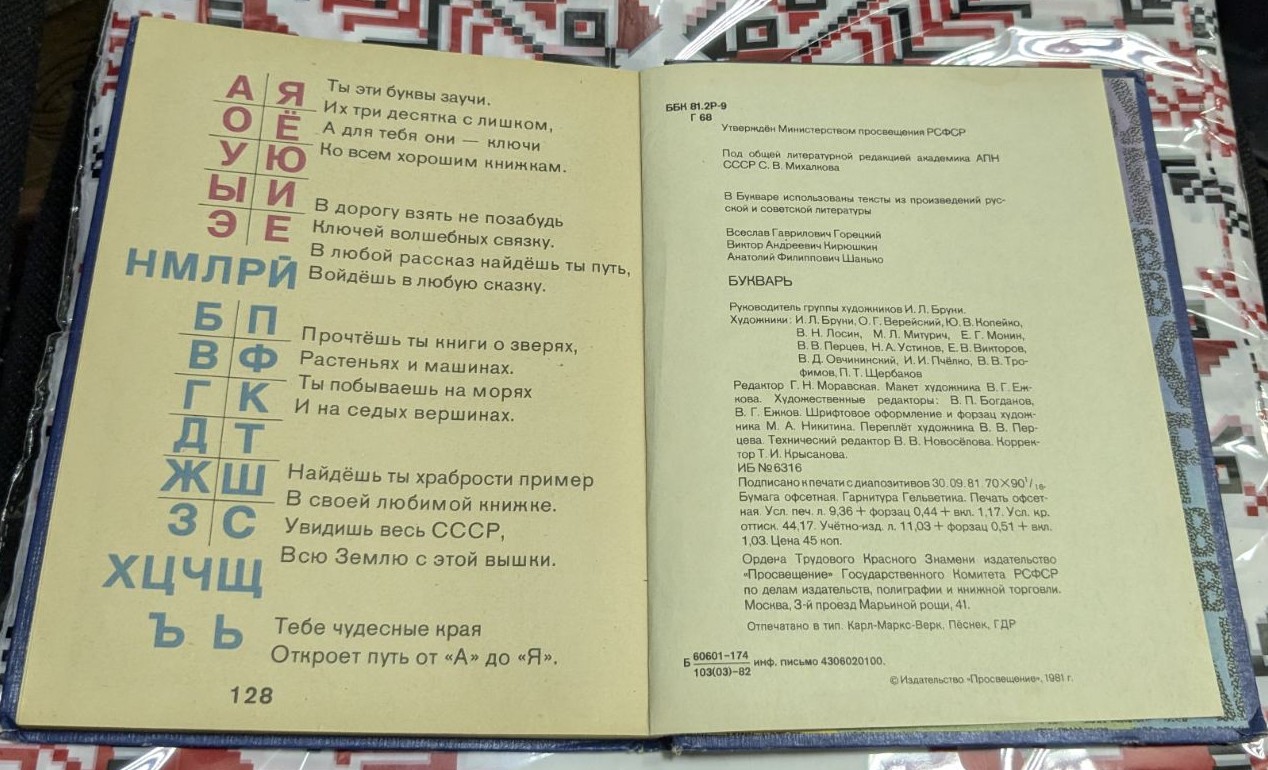 А Я
О Ё
У Ю
Ы И
Э Е
НМЛРЙ
Б П
В Ф
Г К
Д Т
Ж Ш
З С
ХЦЧЩ
Ъ Ь
Ты эти буквы заучи.
Их три десятка с лишком,
А для тебя они — ключи
Ко всем хорошим книжкам.
В дорогу взять не позабудь
Ключей волшебных связку.
В любой рассказ найдёшь ты путь,
Войдёшь в любую сказку.
Прочтёшь ты книги о зверях,
Растеньях и машинах.
Ты побываешь на морях
И на седых вершинах.
Найдёшь ты храбрости пример
В своей любимой книжке.
Увидишь весь СССР,
Всю Землю с этой вышки.
Тебе чудесные края
Откроет путь от «А» до «Я».
128
ББК 81.2Р-9
Г 68
Утверждён Министерством просвещения РСФСР
Под общей литературной редакцией академика АПН
СССР С. В. Михалкова
В Букваре использованы тексты из произведений рус-
ской и советской литературы
Всеслав Гаврилович Горецкий
Виктор Андреевич Кирюшкин
Анатолий Филиппович Шанько
БУКВАРЬ
Руководитель группы художников И. Л. Бруни.
Художники: И. Л. Бруни, О. Г. Верейский, Ю. В. Копейко,
В. Н. Лосин, М. Л. Митурич, Е. Г. Монин,
В. В. Перцев, Н. А. Устинов, Е. В. Викторов,
В. Д. Овчининский, И. И. Пчёлко, В. В. Тро-
фимов, П. Т. Щербаков
Редактор Г. Н. Моравская. Макет художника В. Г. Еж-
кова. Художественные редакторы: В. П. Богданов,
В. Г. Ежков. Шрифтовое оформление и форзац худож-
ника М. А. Никитина. Переплёт художника В. В. Пер-
цева. Технический редактор В. В. Новосёлова. Коррек-
тор Т. И. Крысанова.
ИБ № 6316
Подписано к печати с диапозитивов 30. 09. 81. 70×90 1/16.
Бумага офсетная. Гарнитура Гельветика. Печать офсет-
ная. Усл. печ. л. 9,36 + форзац 0,44 + вкл. 1,17. Усл. кр.
оттиск. 44,17. Учётно-изд. л. 11,03 + форзац 0,51 + вкл.
1,03. Цена 45 коп.
Ордена Трудового Красного Знамени издательство
«Просвещение» Государственного Комитета РСФСР
по делам издательств, полиграфии и книжной торговли.
Москва, 3-й проезд Марьиной рощи, 41.
Отпечатано в тип. Карл-Маркс-Верк. Пёснек, ГДР
Б 60601–174
103(03)–82 инф. письмо 4306020100.
© Издательство «Просвещение», 1981 г.